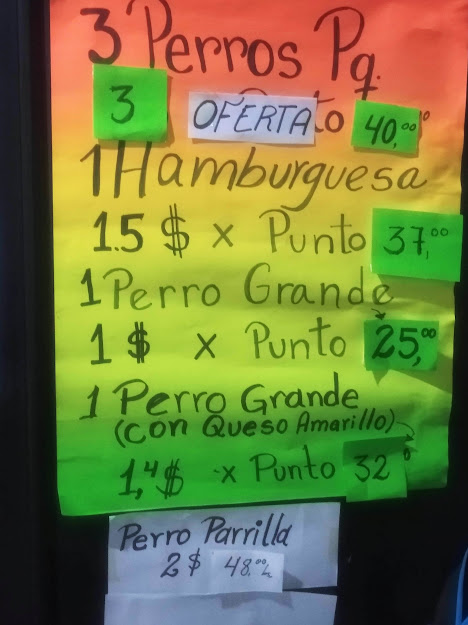 3 Perros Pq.
3 OFERTA to 40,⁰⁰
1 Hamburguesa
1.5 $ x Punto 37,⁰⁰
1 Perro Grande
1 $ x Punto 25,⁰⁰
1 Perro Grande
(con Queso Amarillo)
1,4 $ x Punto 32⁰
Perro Parrilla
2 $ 48,⁰⁰